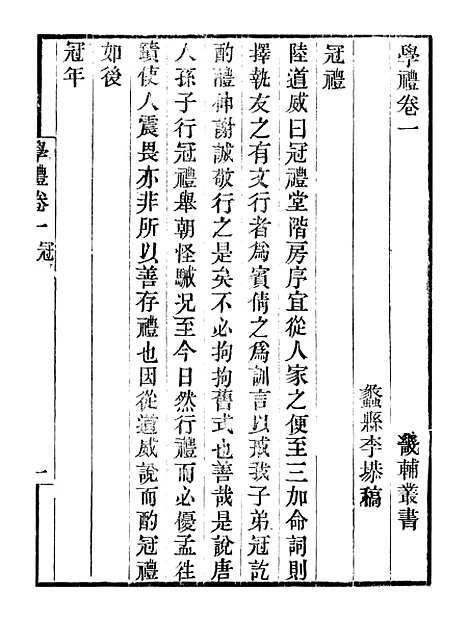 學禮卷一
畿輔叢書
蠡縣李塨稿
冠禮
陸道威曰冠禮堂階房序宜從人家之便至三加命詞則
擇執友之有文行者為賓倩之為訓言以戒我子弟冠訖
酌禮神謝誠敬行之是矣不必拘拘舊式也善哉是說唐
人孫子行冠禮舉朝怪駴况至今日然行禮而必優孟徃
蹟使人震畏亦非所以善存禮也因從道威說而酌冠禮
如後
冠年
學禮卷一 冠
一